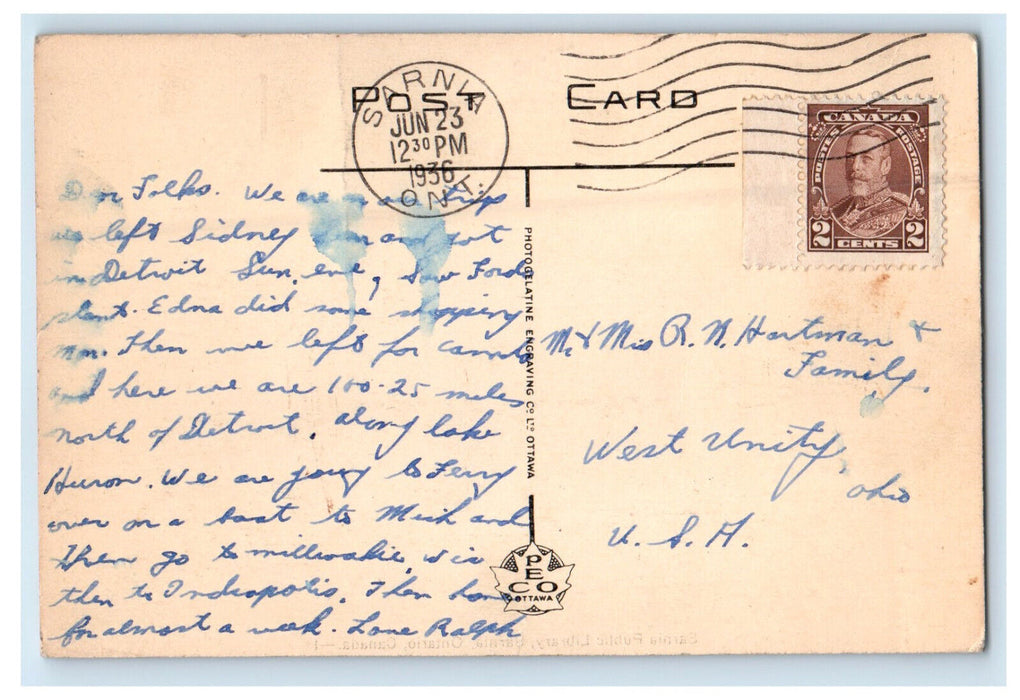 POST CARD
SARNIA
JUN 23
12 30 PM
1936
ONT.
CANADA
POSTES POSTAGE
2 CENTS 2
Dear Folks. We are on a trip
left Sidney and got
in Detroit Sun. eve, Saw Ford
plant. Edna did some shopping
mon. Then we left for canada
and here we are 100-25 miles
north of Detroit, along lake
Huron. We are going to Ferry
over on a boat to Mich and
then go to millwakie, wis
then to Indiapolis. Then home
for almost a week. Love Ralph
PHOTOGELATINE ENGRAVING Co LTD OTTAWA
PECO
OTTAWA
Mr & Mrs R. N. Hartman &
Family.
West Unity,
Ohio
U. S. A.
Sarnia Public Library, Sarnia, Ontario, Canada.